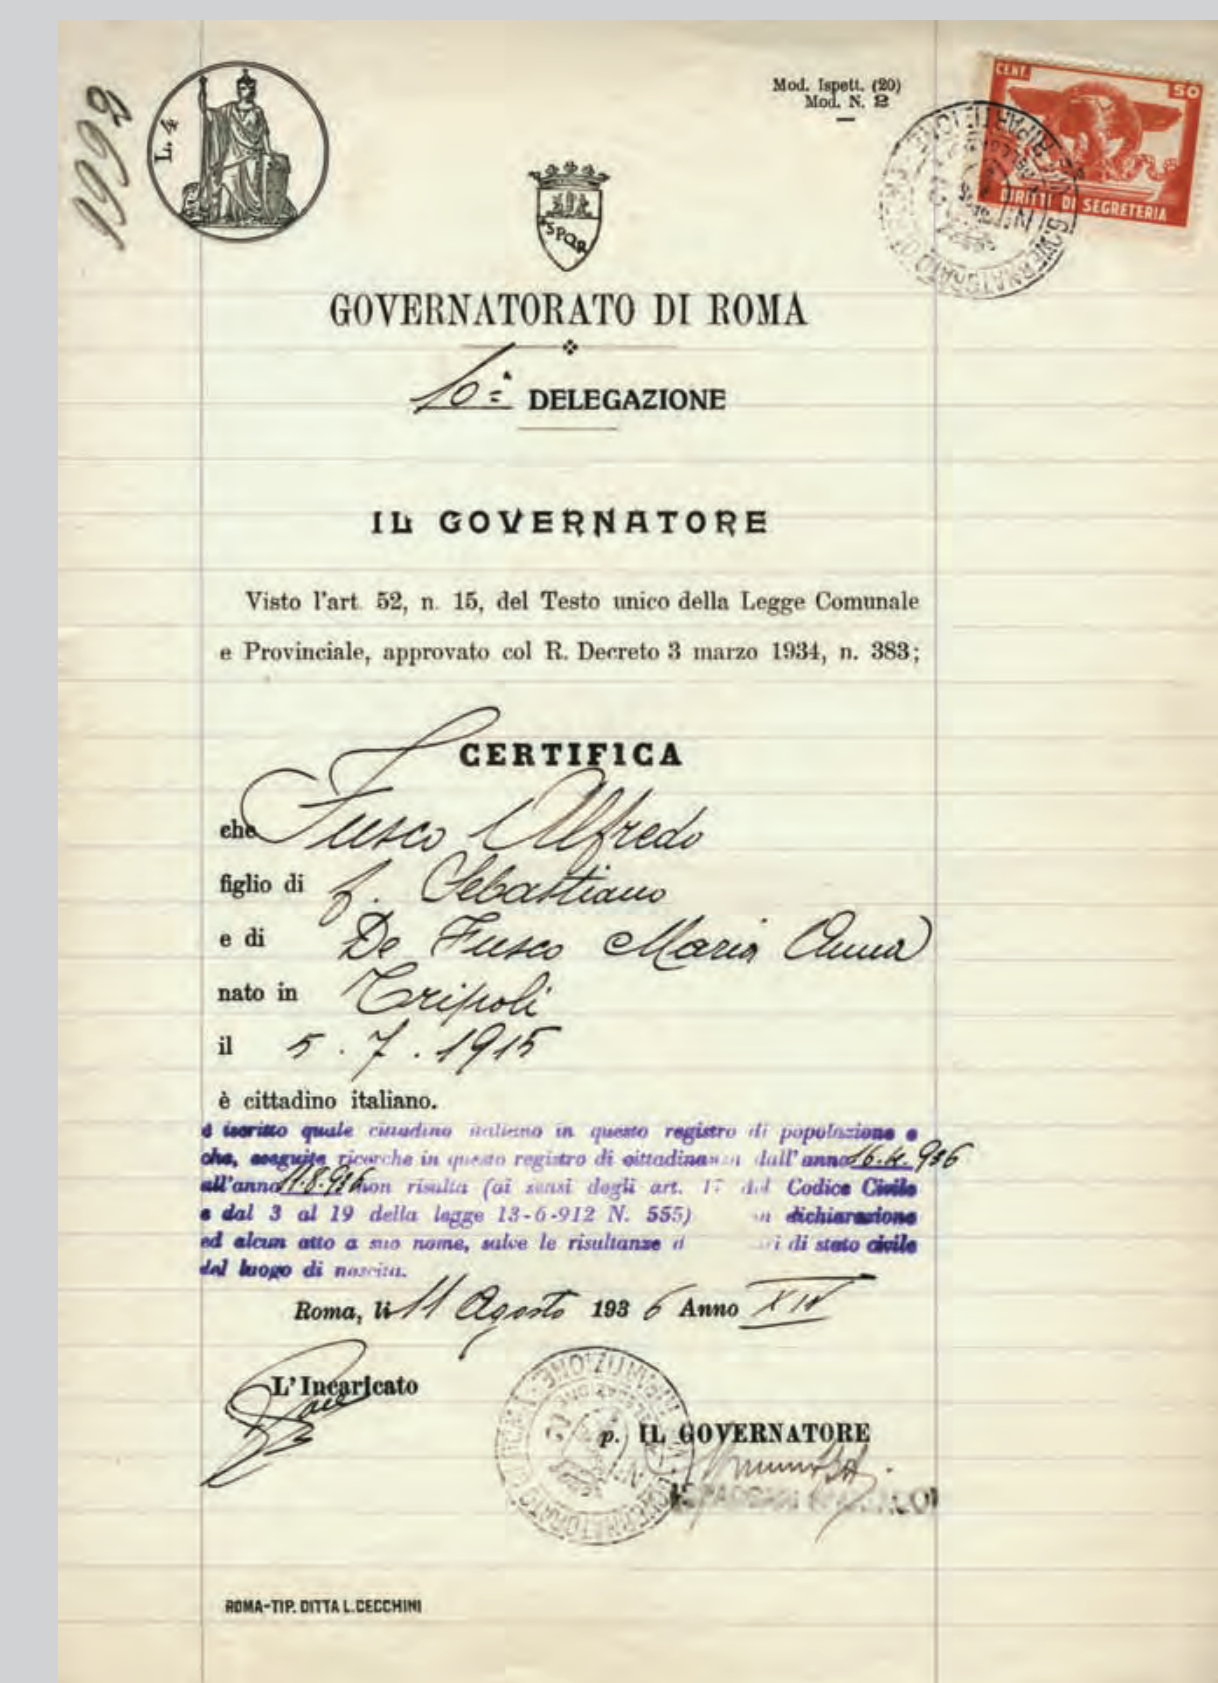 1992
L. 4
Mod. Ispett. (20)
Mod. N. 2
CENT. 50
DIRITTI DI SEGRETERIA
GOVERNATORATO DI
RIPARTIZIONE
SPQR
GOVERNATORATO DI ROMA
10ª DELEGAZIONE
IL GOVERNATORE
Visto l'art. 52, n. 15, del Testo unico della Legge Comunale
e Provinciale, approvato col R. Decreto 3 marzo 1934, n. 383;
CERTIFICA
che Fusco Alfredo
figlio di f. Sebastiano
e di De Fusco Maria Anna
nato in Tripoli
il 5.7.1915
è cittadino italiano.
è iscritto quale cittadino italiano in questo registro di popolazione e
che, eseguite ricerche in questo registro di cittadinanza dall'anno 16.4.936
all'anno 11.8.936 non risulta (ai sensi degli art. 17 del Codice Civile
e dal 3 al 19 della legge 13-6-912 N. 555) dichiarazione
ed alcun atto a suo nome, salve le risultanze di stato civile
del luogo di nascita.
Roma, lì 11 Agosto 1936 Anno XIV
L'Incaricato
p. IL GOVERNATORE
GOVERNATORATO DI ROMA
RIPARTIZIONE
ROMA-TIP. DITTA L. CECCHINI